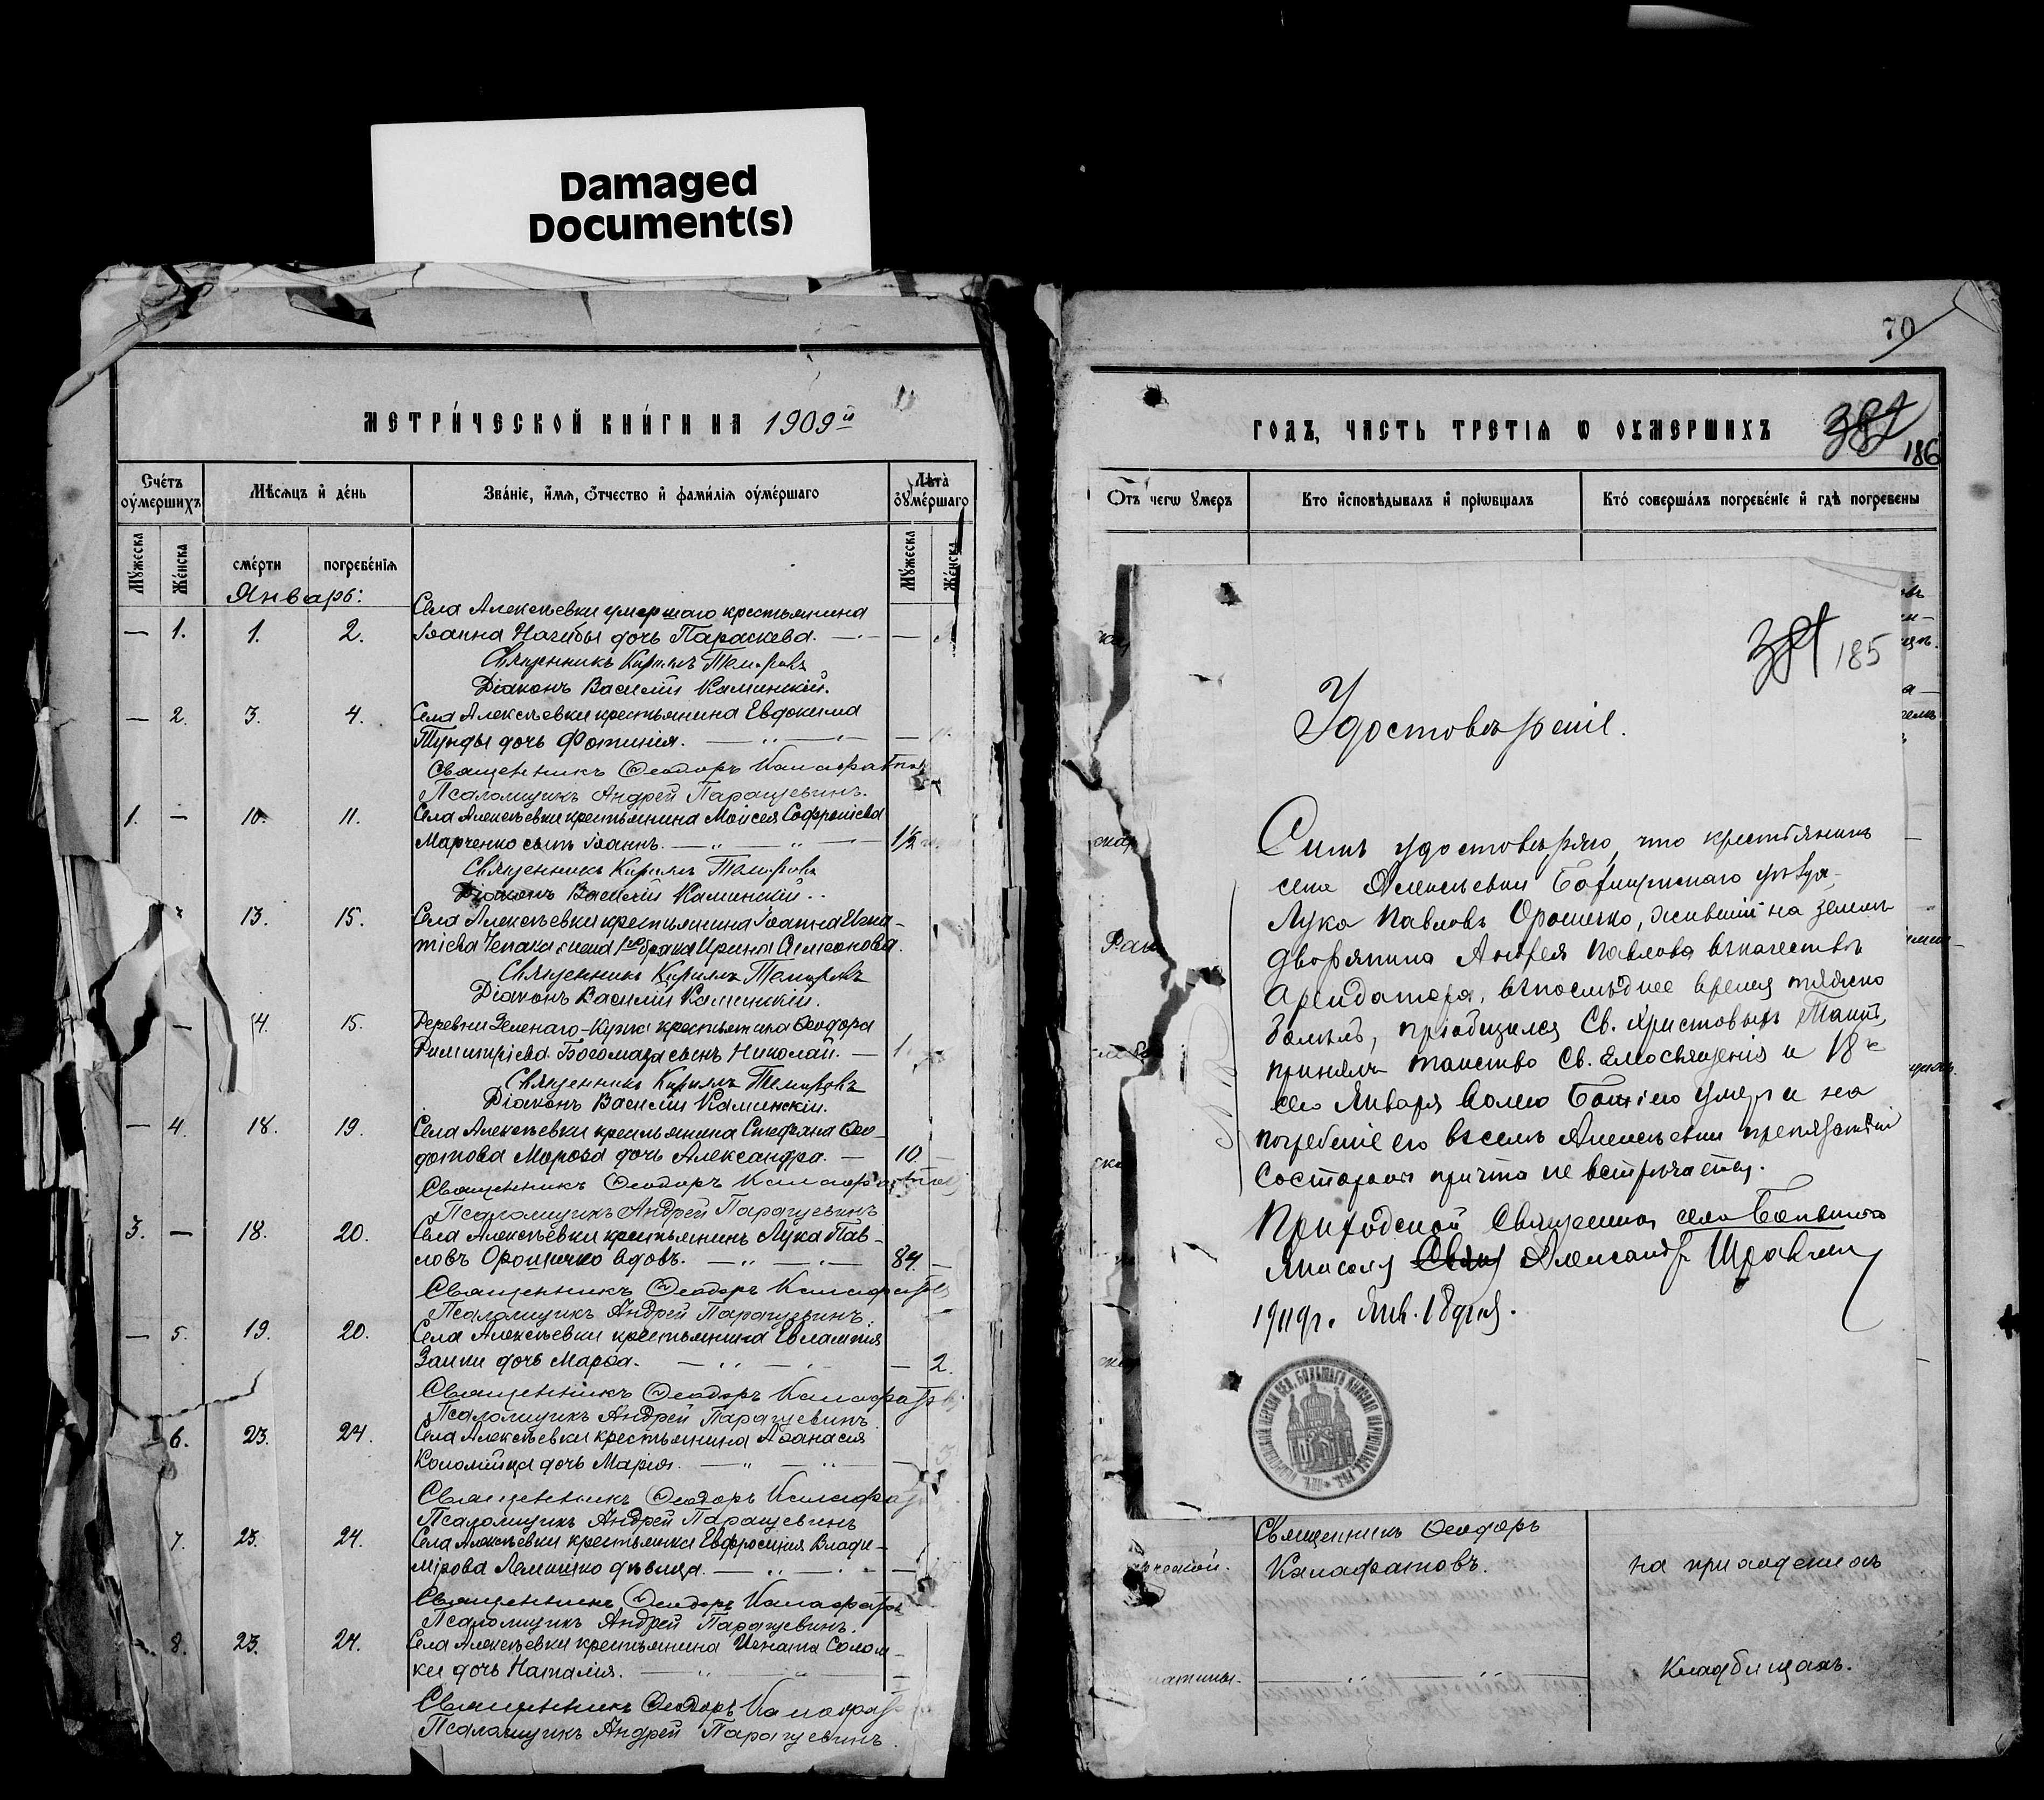 Damaged
Document(s)
МЕТРИ́ЧЕСКОЙ КНИ́ГИ НА 1909й
Сче́тъ оу́мершихъ
Мѣсѧцъ и҆ де́нь
Зва́нїе, и҆́мѧ, ѻ҆́тчество и҆ фами́лїѧ оу҆ме́ршаго
Лѣта̀ оу҆ме́ршаго
Му́жеска
Же́нска
сме́рти
погребе́нїѧ
Му́жеска
Же́нска
Январь:
Села Алексѣевки умершаго крестьянина
— 1. 1. 2. Іоанна Нагибы дочь Параскева. —
Священникъ Кириллъ
Діаконъ Василій Каминскій.
— 2. 3. 4. Села Алексѣевки крестьянина Евдокима
Тунды дочь Фотинія. —
Священникъ Ѳеодоръ Калафатовъ
Псаломщикъ Андрей Паращевинъ.
1. — 10. 11. Села Алексѣевки крестьянина Моисея Софроніева
Марченко сынъ Іоаннъ. —
Священникъ Кириллъ
Діаконъ Василій Каминскій.
13. 15. Села Алексѣевки крестьянина Іоанна Игна-
тіева Чепака жена 1го брака Ирина Симеонова.
Священникъ Кириллъ
Діаконъ Василій Каминскій.
— 14. 15. Деревни Зеленаго-Кута крестьянина Ѳеодора
Димитріева Богомаза сынъ Николай. — 1.
Священникъ Кириллъ
Діаконъ Василій Каминскій.
— 4. 18. 19. Села Алексѣевки крестьянина Стефана Ѳео-
дотова Мороза дочь Александра. — 10. —
Священникъ Ѳеодоръ Калафатовъ
Псаломщикъ Андрей Паращевинъ
3. — 18. 20. Села Алексѣевки крестьянинъ Лука Пав-
ловъ Орошечко вдовъ. — 84. —
Священникъ Ѳеодоръ Калафатовъ
Псаломщикъ Андрей Паращевинъ.
— 5. 19. 20. Села Алексѣевки крестьянина Евлампія
Заики дочь Марѳа. — — 2.
Священникъ Ѳеодоръ Калафатовъ
Псаломщикъ Андрей Паращевинъ
6. 23. 24. Села Алексѣевки крестьянина Аѳанасія
Коломійца дочь Марія. —
Священникъ Ѳеодоръ Калафатовъ
Псаломщикъ Андрей Паращевинъ
7. 23. 24. Села Алексѣевки крестьянка Евфросинія Влади-
мірова Лемешко дѣвица. —
Священникъ Ѳеодоръ Калафатовъ
Псаломщикъ Андрей Паращевинъ.
8. 23. 24. Села Алексѣевки крестьянина Игната Солом-
ки дочь Наталія. —
Священникъ Ѳеодоръ Калафатовъ
Псаломщикъ Андрей Паращевинъ
70
ГОДЪ, ЧАСТЬ ТРЕТІѦ Ѡ ОУМЕРШИХЪ
186
Отъ чегѡ ᲂумеръ
Кто и҆сповѣ́дывалъ и҆ прїѡбща́лъ
Кто́ соверша́лъ погребе́нїе и҆ гдѣ̀ погребены
185
Удостовѣреніе.
Симъ удостовѣряю, что крестьянинъ
села Алексѣевки Бахмутскаго уѣзда,
Лука Павловъ Орошечко, жившій на землѣ
дворянина Андрея Павлова въ качествѣ
арендатора, въ послѣднее время тяжко
болѣлъ, пріобщился Св. Христовыхъ Таинъ,
принялъ таинство Св. Елеосвященія и 18го
сего Января волею Божіею умеръ и на
погребеніе его въ селѣ Алексѣевки препятствій
со стороны причта не встрѣчается.
Приходской Священникъ села Большаго
Янисоля Александръ
1909г. Янв. 18 дня.
Священникъ Ѳеодоръ
Калафатовъ.
на приходскихъ
Кладбищахъ.